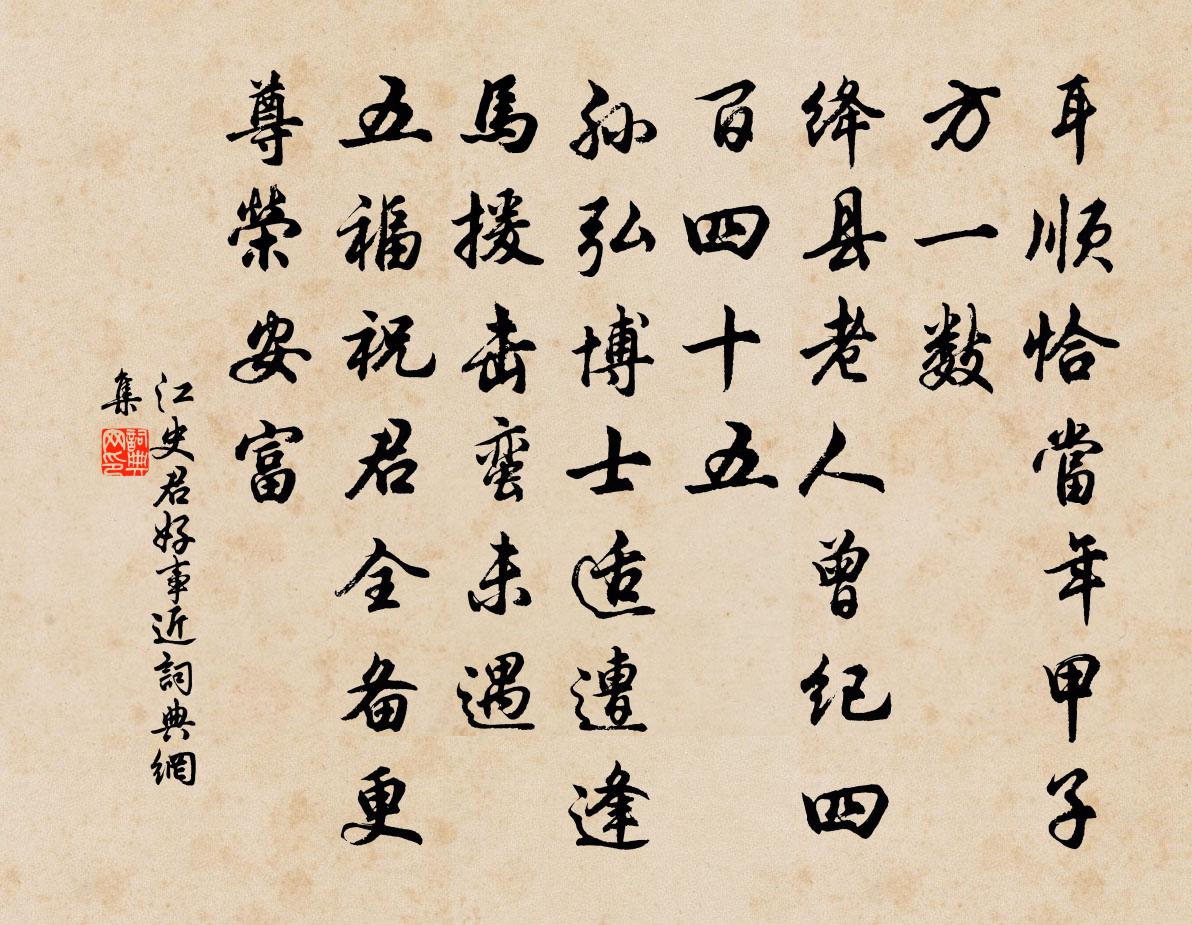 耳順恰當年甲子
方一數
绛县老人曾纪四
百四十五
孙弘博士适遭逢
馬援击蛮未遇
五福祝君全备更
尊榮安富
江史君好事近詞典網
集
詞典
网印